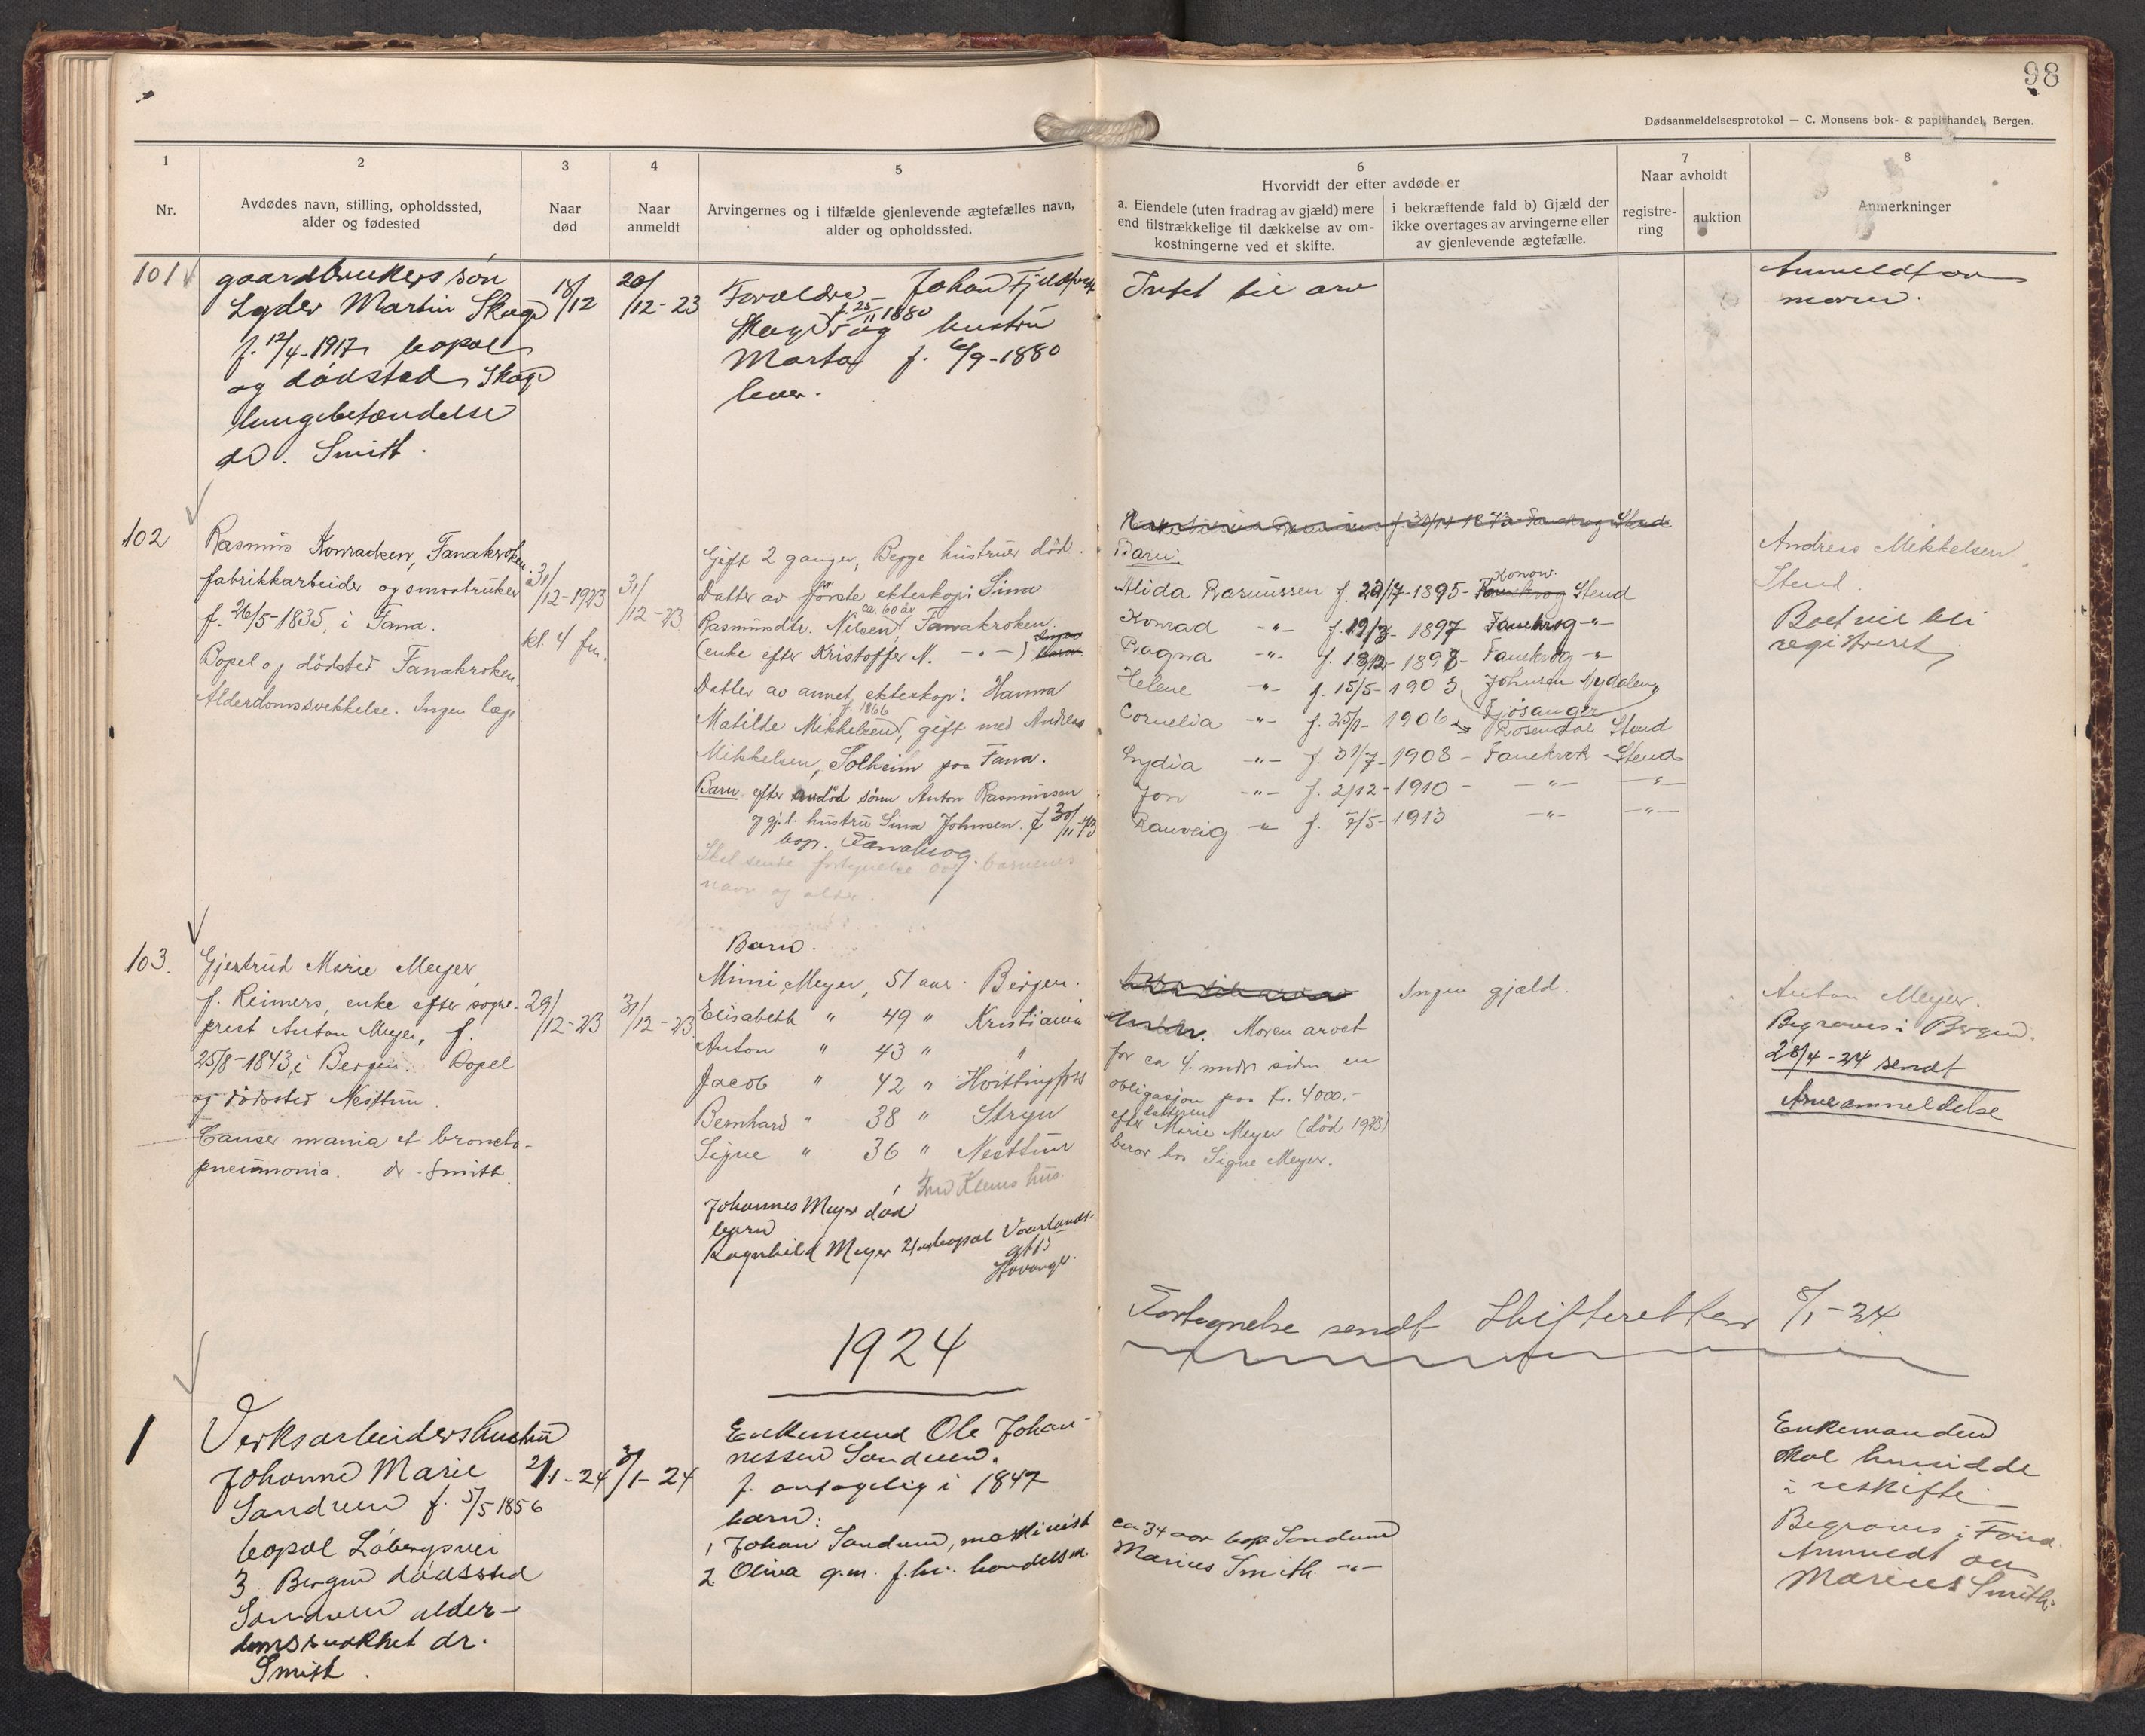 98
Dødsanmeldelsesprotokol — C. Monsens bok- & papirhandel, Bergen.
1
Nr.
2
Avdødes navn, stilling, opholdssted,
alder og fødested
3
Naar
død
4
Naar
anmeldt
5
Arvingernes og i tilfælde gjenlevende ægtefælles navn,
alder og opholdssted.
6
Hvorvidt der efter avdøde er
a. Eiendele (uten fradrag av gjæld) mere
end tilstrækkelige til dækkelse av om-
kostningerne ved et skifte.
i bekræftende fald b) Gjæld der
ikke overtages av arvingerne eller
av gjenlevende ægtefælle.
7
Naar avholdt
registre-
ring
auktion
8
Anmerkninger
101
gaardbrukers søn
Lyder Martin Skage
f. 12/4-1917 bopæl
og dødsted Skage
lungebetændelse
dr. Smith.
18/12
20/12-23
Forældre Johan Fjeldtvedt
f. 25/11 1880
Skage og hustru
Marta f. 6/9-1880
lever.
Intet til arv
Anmeldt av
moren.
102
Rasmus Konradsen, Fanakroken
fabrikkarbeider og smaabruker
f. 26/5-1835, i Fana.
Bopel og dödsted Fanakroken.
Alderdomssvekkelse. Ingen læge
31/12-1923
kl. 4 fm.
31/12-23
Gift 2 ganger, Begge hustruer död.
Datter av förste ekteskap: Sina
ca. 60 år
Rasmusdtr. Nilsen, Fanakroken.
(enke efter Kristoffer N. -"-)
Datter av annet ekteskap: Hanna
f. 1866
Matilde Mikkelsen, gift med Andreas
Mikkelsen, Solheim paa Fana.
Barn efter avdöd sönn Anton Rasmussen
og gj.l. hustru Sina Johnsen. f 30/11-73
bop. Fanakrog.
Skal sende fortegnelse over barnenes
navn og alder.
Barn:
Alida Rasmussen f. 29/7-1895- Konow. Fanekrog Stend
Konrad -"- f. 19/3- 1897 Fanekrog -"-
Ragna -"- f. 18/12- 1898- Fanekrog -"-
Helene -"- f. 15/5-1903, Johnsen Nydalen,
Fjösanger
Cornelia -"- f. 25/1- 1906 Rosendal Stend
Lydia -"- f. 31/7-1908 - Fanekrok Stend
Jon -"- f. 2/12-1910 - -"- -"-
Ranveig -"- f. 7/5-1913 -"- -"-
Andreas Mikkelsen,
Stend.
Boet vil bli
registreret
103.
Gjertrud Marie Meyer,
f. Reimers, enke efter sogne-
prest Anton Meyer, f.
25/8-1843, i Bergen. Bopel
og dödsted Nesttun.
Causer mania et broncho-
pneumonia. dr. Smith.
29/12-23
31/12-23
Barn.
Mimi Meyer, 51 aar. Bergen.
Elisabeth " 49 " Kristiania
Anton " 43 " "
Jacob " 42 " Hvittingfoss
Bernhard " 38 " Stryn
Signe " 36 " Nesttun
Johannes Meyer död
barn
Ragnhild Meyer 21 aar bopæl
Moren arvet
for ca 4. mndr siden en
obligasjon paa kr. 4000.-
efter datteren Marie Meyer (död 1923)
beror hos Signe Meyer.
Ingen gjæld.
Anton Meyer.
Begraves i Bergen.
28/4-24 sendt
Arveanmeldelse
Fortegnelse sendt Skifteretten 8/1-24
1924
1
Verksarbeidershustru
Johanne Marie
Sandven f. 5/5 1856
bopæl Löbergsvei
3 Bergen dødssted
Sandven alder-
domssvakhet dr.
Smith.
2/1-24
3/1-24
Enkemand Ole Johan-
nessen Sandven.
f. antagelig i 1847
barn:
1 Johan Sandven, maskinist ca 34 aar bop. Sandven
2 Oliva g.m. f.hv. handelsm. Marius Smith -"-
Enkemanden
skal hensidde
i uskifte
Begraves i Fana.
Anmeldt av
Marius Smith.